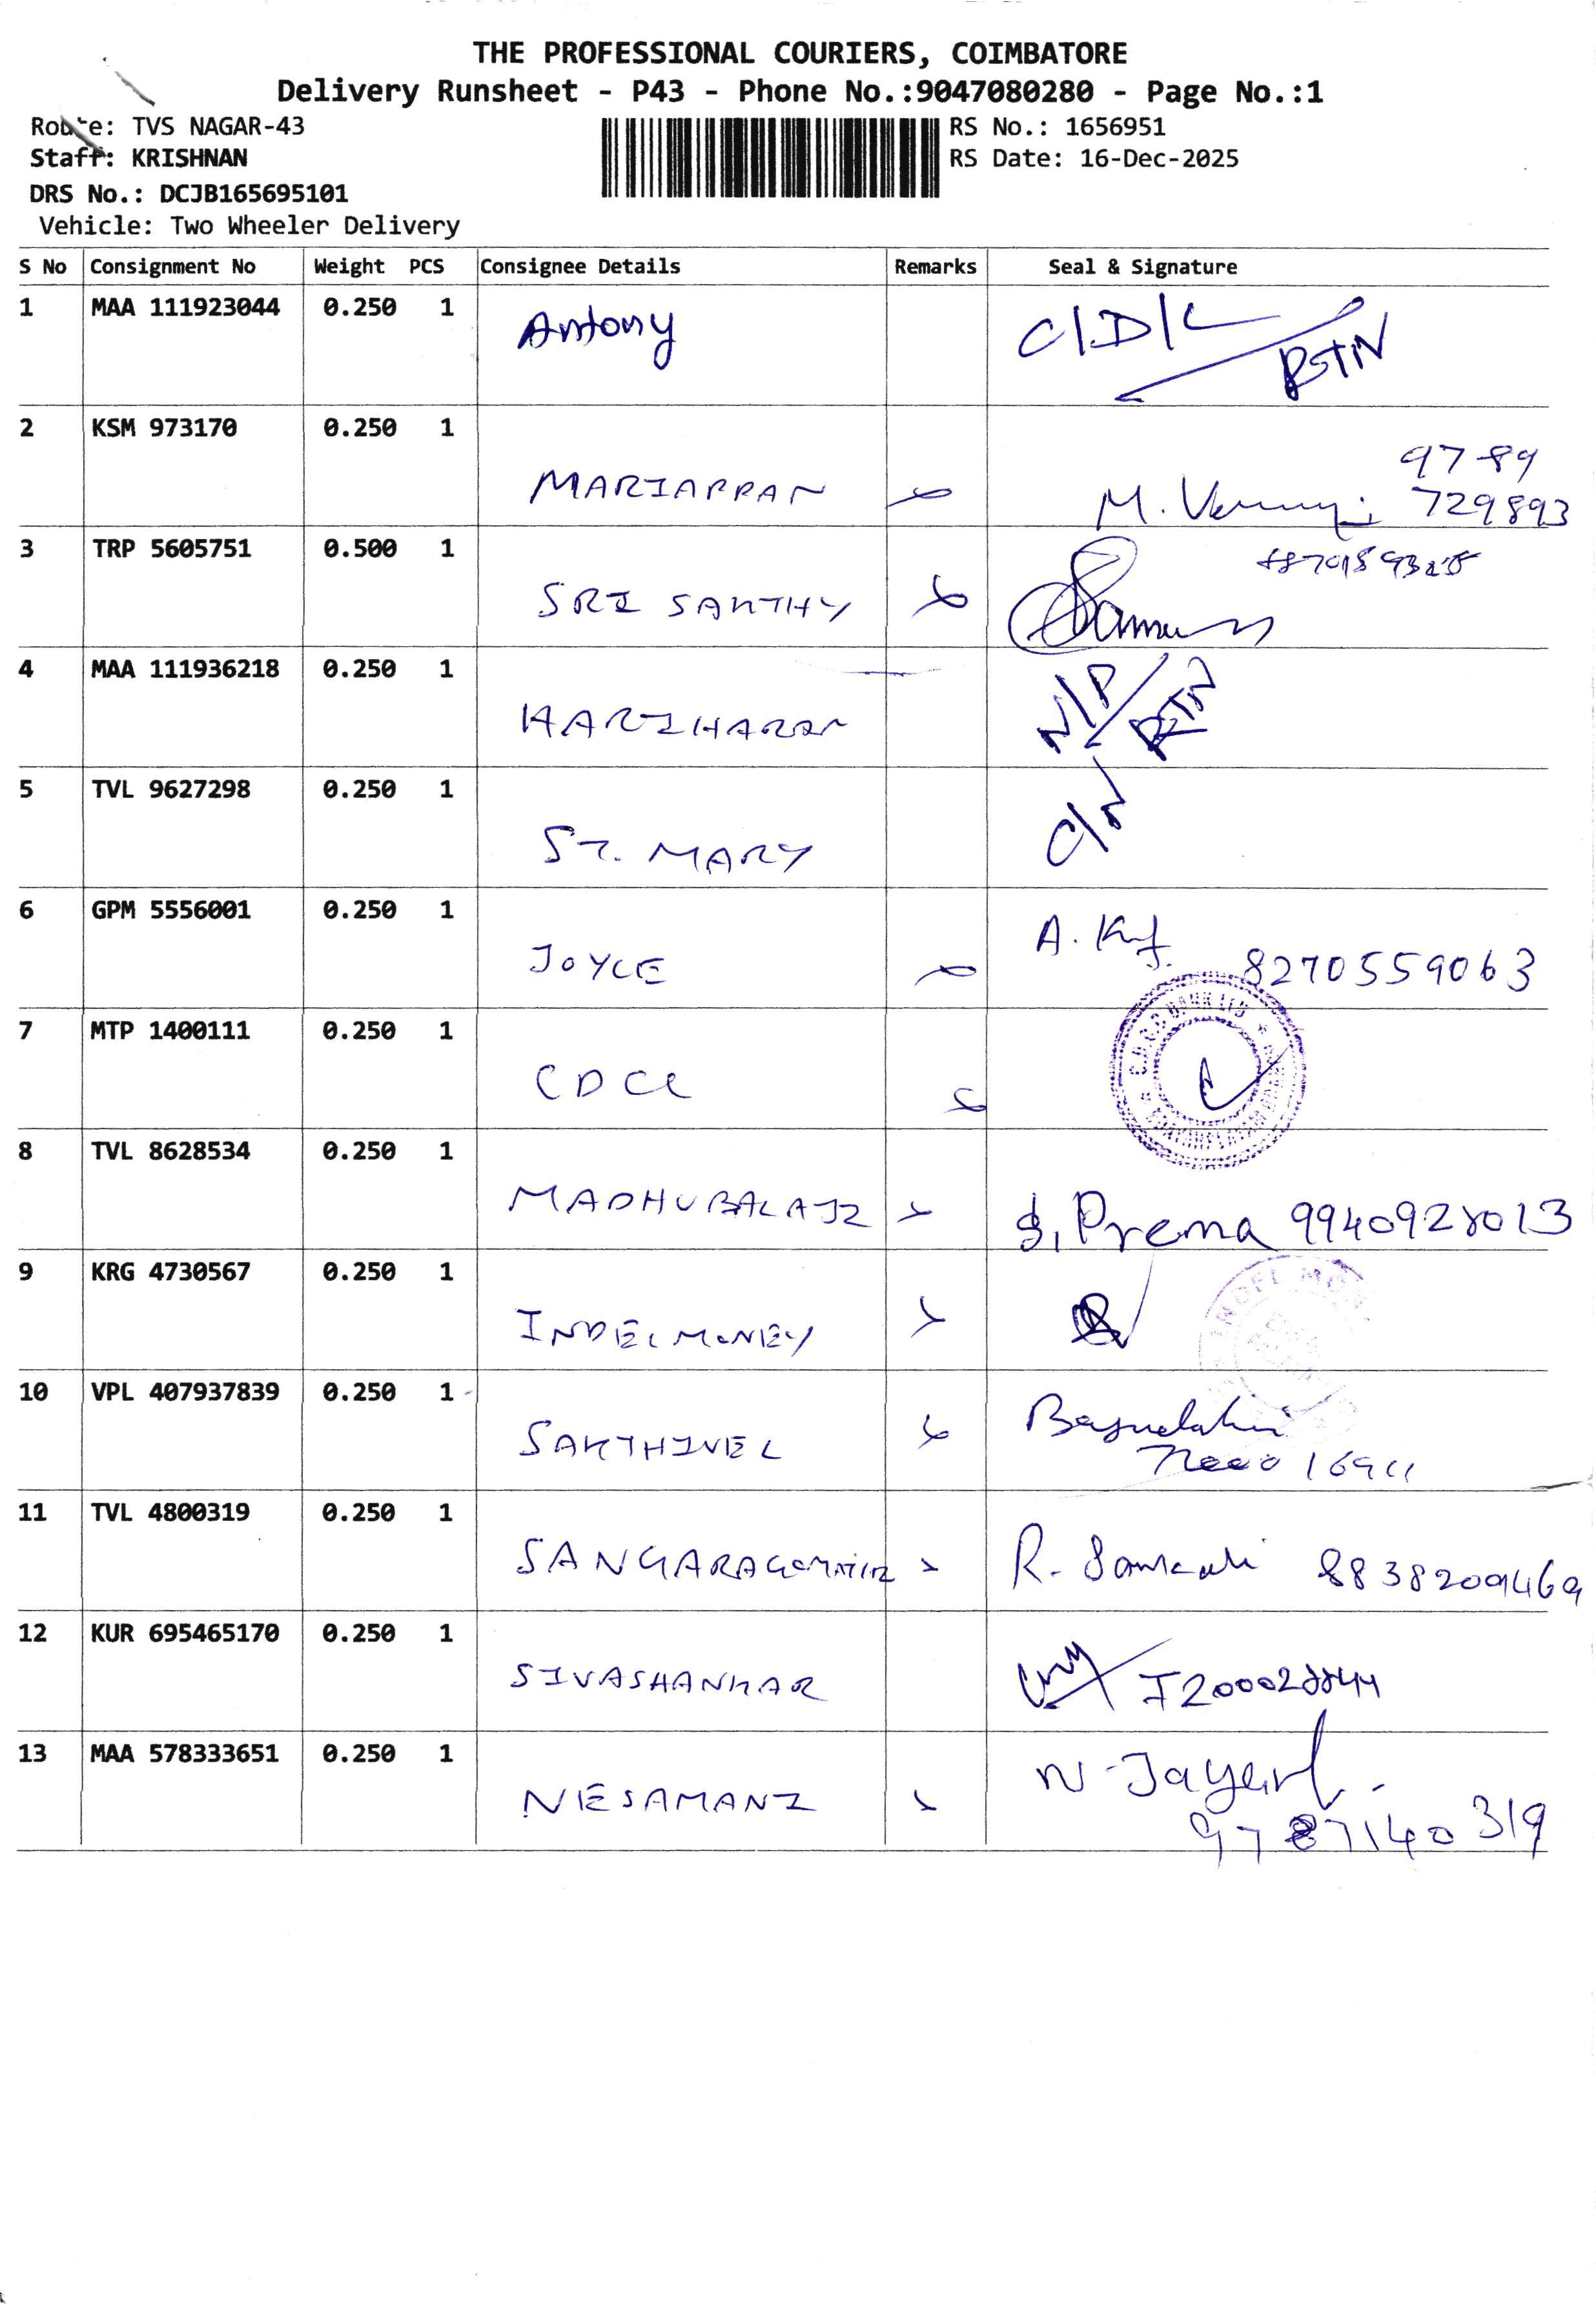 THE PROFESSIONAL COURIERS, COIMBATORE
Delivery Runsheet - P43 - Phone No.:9047080280 - Page No.:1
Route: TVS NAGAR-43
RS No.: 1656951
Staff: KRISHNAN
RS Date: 16-Dec-2025
DRS No.: DCJB165695101
Vehicle: Two Wheeler Delivery
S No Consignment No Weight PCS Consignee Details Remarks Seal & Signature
1 MAA 111923044 0.250 1 Antony C/D/L
RTN
2 KSM 973170 0.250 1 MARIAPPAN 9789
M. 729893
3 TRP 5605751 0.500 1 SRI SAKTHY
4 MAA 111936218 0.250 1 HARIHARAN N/P RTN
5 TVL 9627298 0.250 1 ST. MARY C/N
6 GPM 5556001 0.250 1 JOYCE A. 8270559063
7 MTP 1400111 0.250 1
8 TVL 8628534 0.250 1 MADHUBALAJI S. Prema 9940928013
9 KRG 4730567 0.250 1 INDEL MONEY INDEL MON
10 VPL 407937839 0.250 1 SAKTHIVEL
11 TVL 4800319 0.250 1 R. 8838209469
12 KUR 695465170 0.250 1 SIVASHANKAR
13 MAA 578333651 0.250 1 NESAMANI N.
9787140319